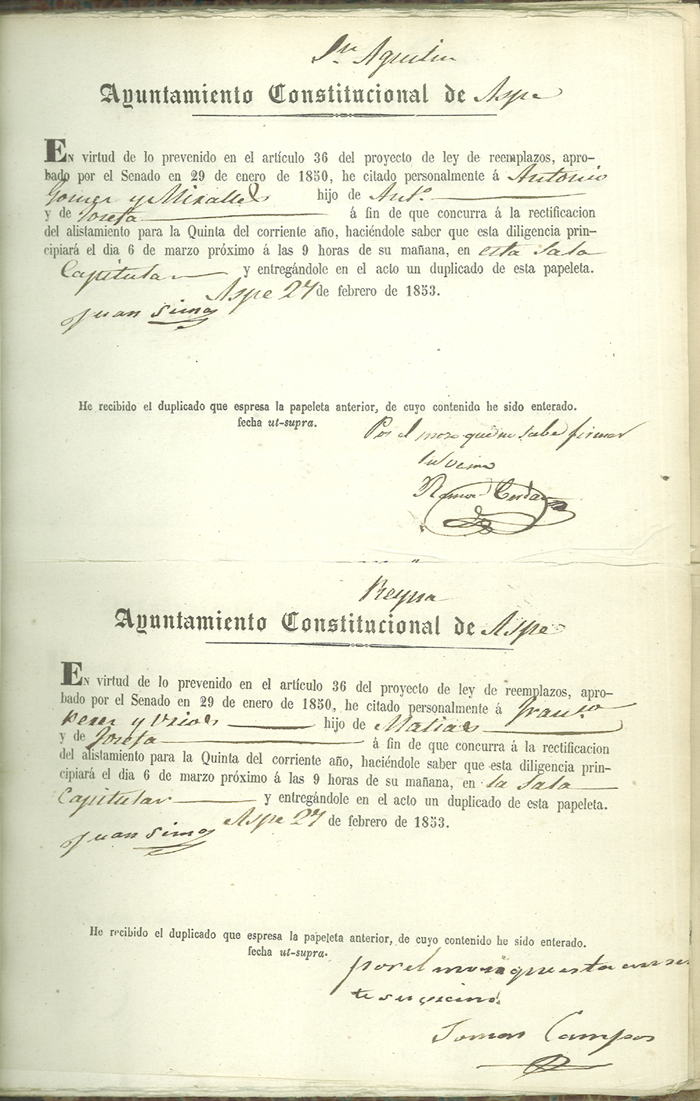 Sn Agustin
Ayuntamiento Constitucional de Aspe
En virtud de lo prevenido en el artículo 36 del proyecto de ley de reemplazos, apro-
bado por el Senado en 29 de enero de 1850, he citado personalmente á Antonio
Gomez y Miralles hijo de Ant.º
y de Josefa á fin de que concurra á la rectificacion
del alistamiento para la Quinta del corriente año, haciéndole saber que esta diligencia prin-
cipiará el dia 6 de marzo próximo á las 9 horas de su mañana, en esta Sala
Capitular y entregándole en el acto un duplicado de esta papeleta.
Aspe 27 de febrero de 1853.
Juan Simo
He recibido el duplicado que espresa la papeleta anterior, de cuyo contenido he sido enterado.
fecha ut-supra.
Por el moso que no sabe firmar
su vecino
Ramon Cerdan
Reyna
Ayuntamiento Constitucional de Aspe
En virtud de lo prevenido en el artículo 36 del proyecto de ley de reemplazos, apro-
bado por el Senado en 29 de enero de 1850, he citado personalmente á Franco
y hijo de Matias
y de Josefa á fin de que concurra á la rectificacion
del alistamiento para la Quinta del corriente año, haciéndole saber que esta diligencia prin-
cipiará el dia 6 de marzo próximo á las 9 horas de su mañana, en la Sala
Capitular y entregándole en el acto un duplicado de esta papeleta.
Aspe 27 de febrero de 1853.
Juan Simo
He recibido el duplicado que espresa la papeleta anterior, de cuyo contenido he sido enterado.
fecha ut-supra.
por el moso que esta ausen
te su vecino
Tomas Campos